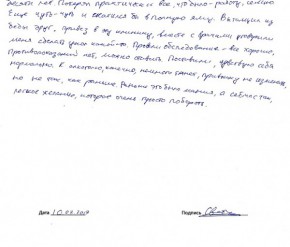 десять лет. Потерял практически все, что было - работу, семью.
Еще чуть-чуть и оказался бы в полную яму. Вытащил из
беды друг, привез в эту клинику, вместе с врачами уговорили
меня сделать укол какой-то. Прошли обследование - все хорошо,
Противопоказаний нет, можно ставить. Поставили, чувствую себя
нормально. К алкоголю, конечно, немного тянет, привычку не изменишь,
но не так, как раньше. Раньше это была мания, а сейчас так,
легкое желание, которое очень просто побороть.
Дата
Подпись